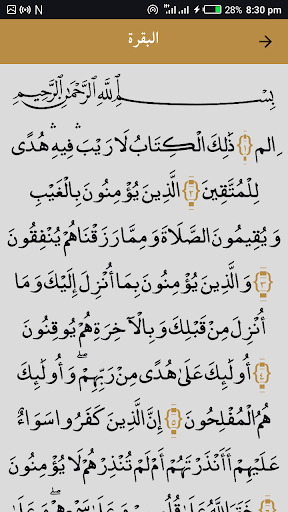 28% 8:30 pm
البقرة
بِسْمِ ٱللَّهِ ٱلرَّحْمَٰنِ ٱلرَّحِيمِ
الم ۝١ ذَٰلِكَ الْكِتَابُ لَا رَيْبَ ۛ فِيهِ ۛ هُدًى
لِلْمُتَّقِينَ ۝٢ الَّذِينَ يُؤْمِنُونَ بِالْغَيْبِ
وَيُقِيمُونَ الصَّلَاةَ وَمِمَّا رَزَقْنَاهُمْ يُنْفِقُونَ
۝٣ وَالَّذِينَ يُؤْمِنُونَ بِمَا أُنْزِلَ إِلَيْكَ وَمَا
أُنْزِلَ مِنْ قَبْلِكَ وَبِالْآخِرَةِ هُمْ يُوقِنُونَ
۝٤ أُولَٰئِكَ عَلَىٰ هُدًى مِنْ رَبِّهِمْ ۖ وَأُولَٰئِكَ
هُمُ الْمُفْلِحُونَ ۝٥ إِنَّ الَّذِينَ كَفَرُوا سَوَاءٌ
عَلَيْهِمْ أَأَنْذَرْتَهُمْ أَمْ لَمْ تُنْذِرْهُمْ لَا يُؤْمِنُونَ